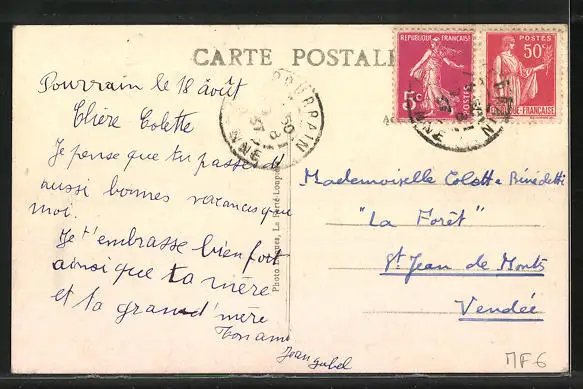 CARTE POSTALE
REPUBLIQUE FRANÇAISE
5c
POSTES
POSTES
50c
FRANÇAISE
POURRAIN
YONNE
Pourrain le 18 août
Chère Colette
Je pense que tu passe d'
aussi bonnes vacances que
moi.
Je t'embrasse bien fort
ainsi que ta mère
et ta grand'mère
Ton ami
Jean
Mademoiselle Colette Bénédetti
"La Forêt"
St Jean de Monts
Vendée
Photo La Ferté-Loupière
MF6